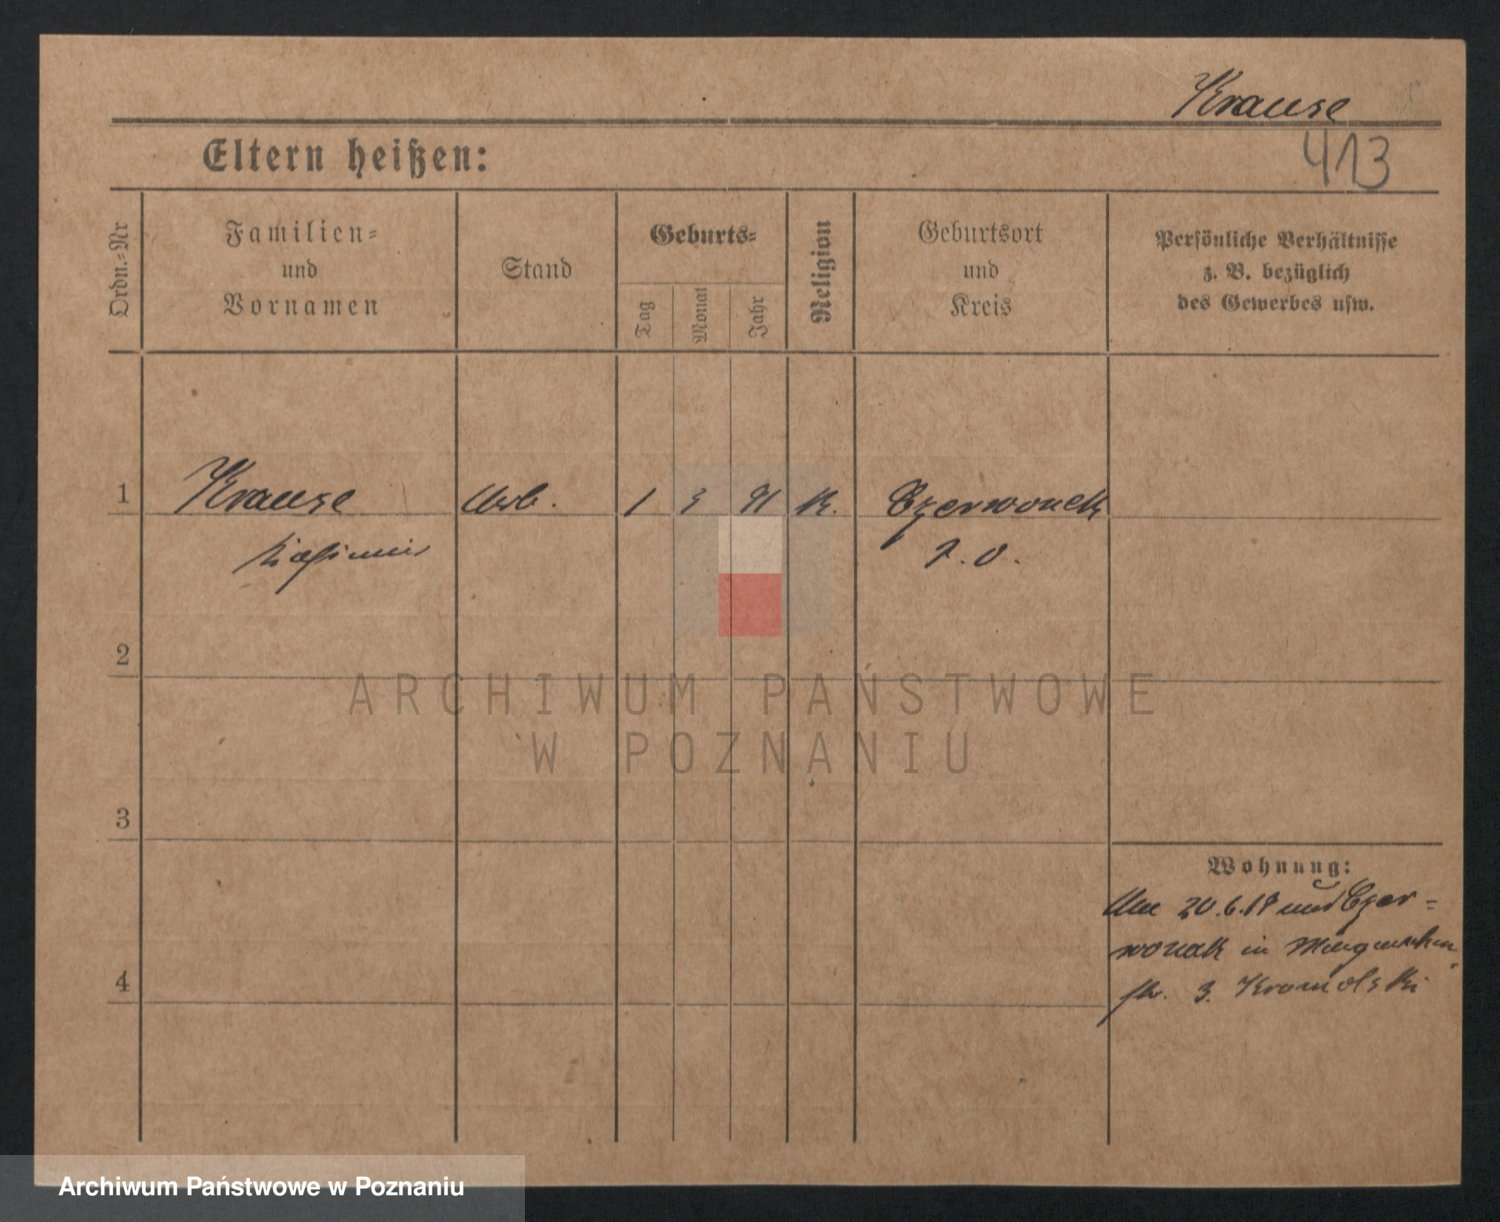 Krause
Eltern heißen:
413
Ordn.-Nr
Familien-
und
Vornamen
Stand
Geburts-
Tag
Monat
Jahr
Religion
Geburtsort
und
Kreis
Persönliche Verhältnisse
z. B. bezüglich
des Gewerbes usw.
1
Krause
Arb.
1
3
91
K.
Czerwonak
P. O.
Kasimir
2
ARCHIWUM PAŃSTWOWE
W POZNANIU
3
Wohnung:
20.6.19 Czer-
wonak in
str. 3.
4
Archiwum Państwowe w Poznaniu